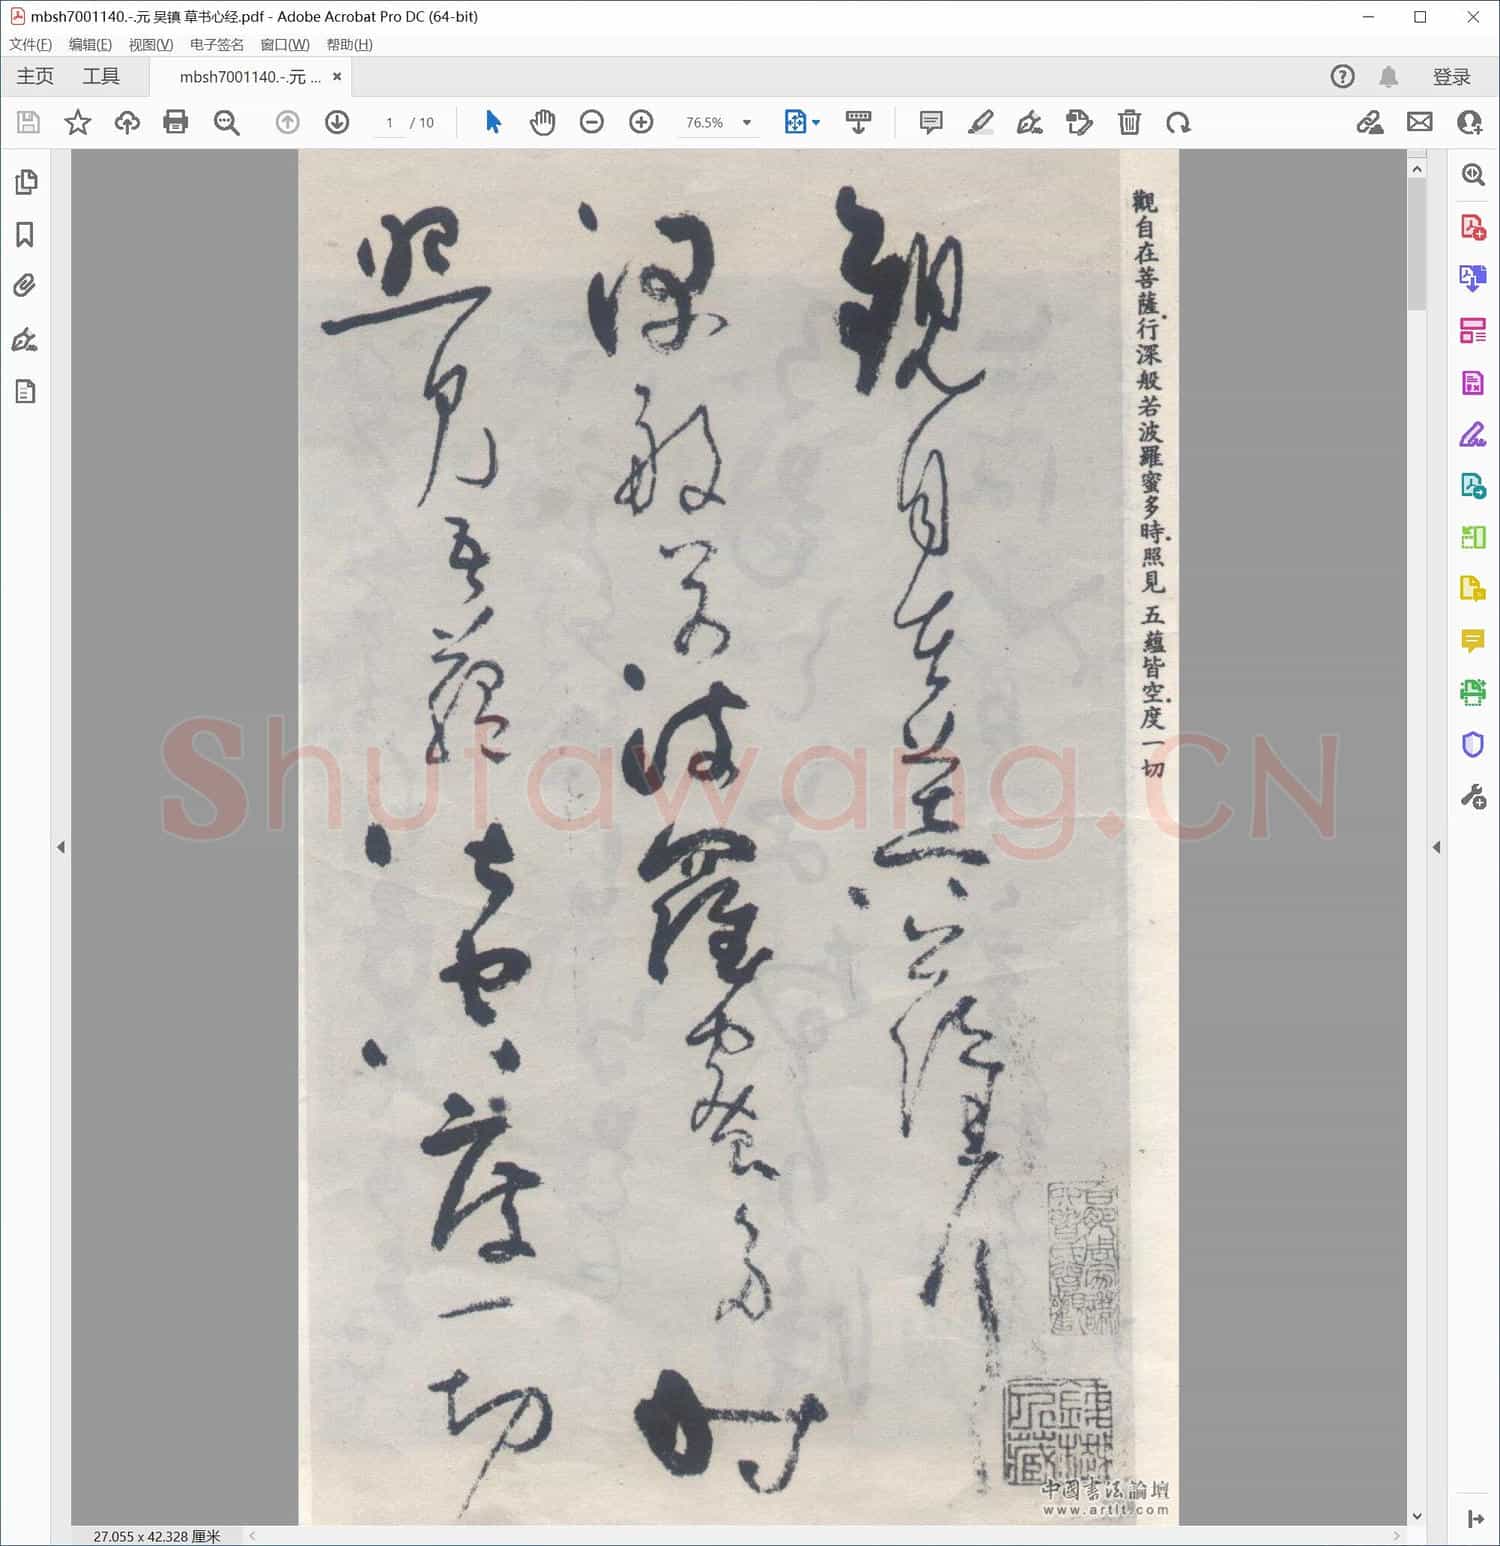 mbsh7001140.-.元 吴镇 草书心经.pdf - Adobe Acrobat Pro DC (64-bit)
文件(F) 编辑(E) 视图(V) 电子签名 窗口(W) 帮助(H)
主页 工具 mbsh7001140.-.元 ... × 登录
1 / 10 76.5%
觀自在菩薩.行深般若波羅蜜多時.照見 五蘊皆空.度一切
觀自在菩薩行
深般若波羅蜜多時
照見五蘊皆空度一切
Shufawang.CN
中國書法論壇
www.artlt.com
27.055 x 42.328 厘米